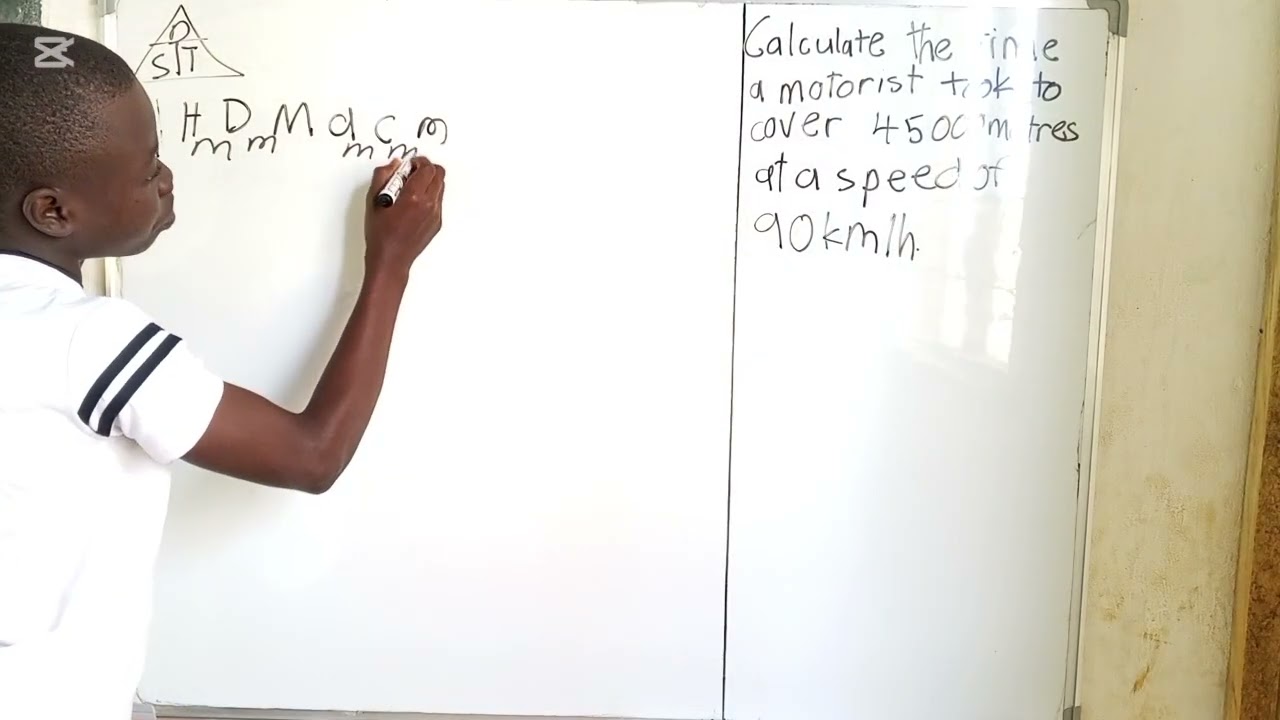 D
S T
H D M d c m
m m m m
Calculate the time
a motorist took to
cover 4500 metres
at a speed of
90km/h.